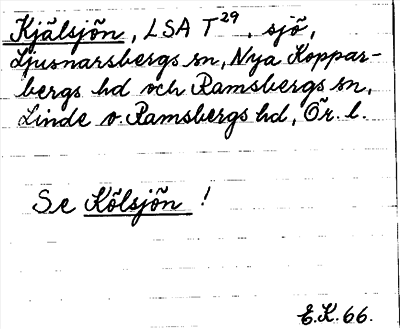 Kjälsjön, LSA T29, sjö,
Ljusnarsbergs sn, Nya Koppar-
bergs hd och Ramsbergs sn,
Linde o. Ramsbergs hd, Ör. l.
Se Kölsjön!
E.K. 66.